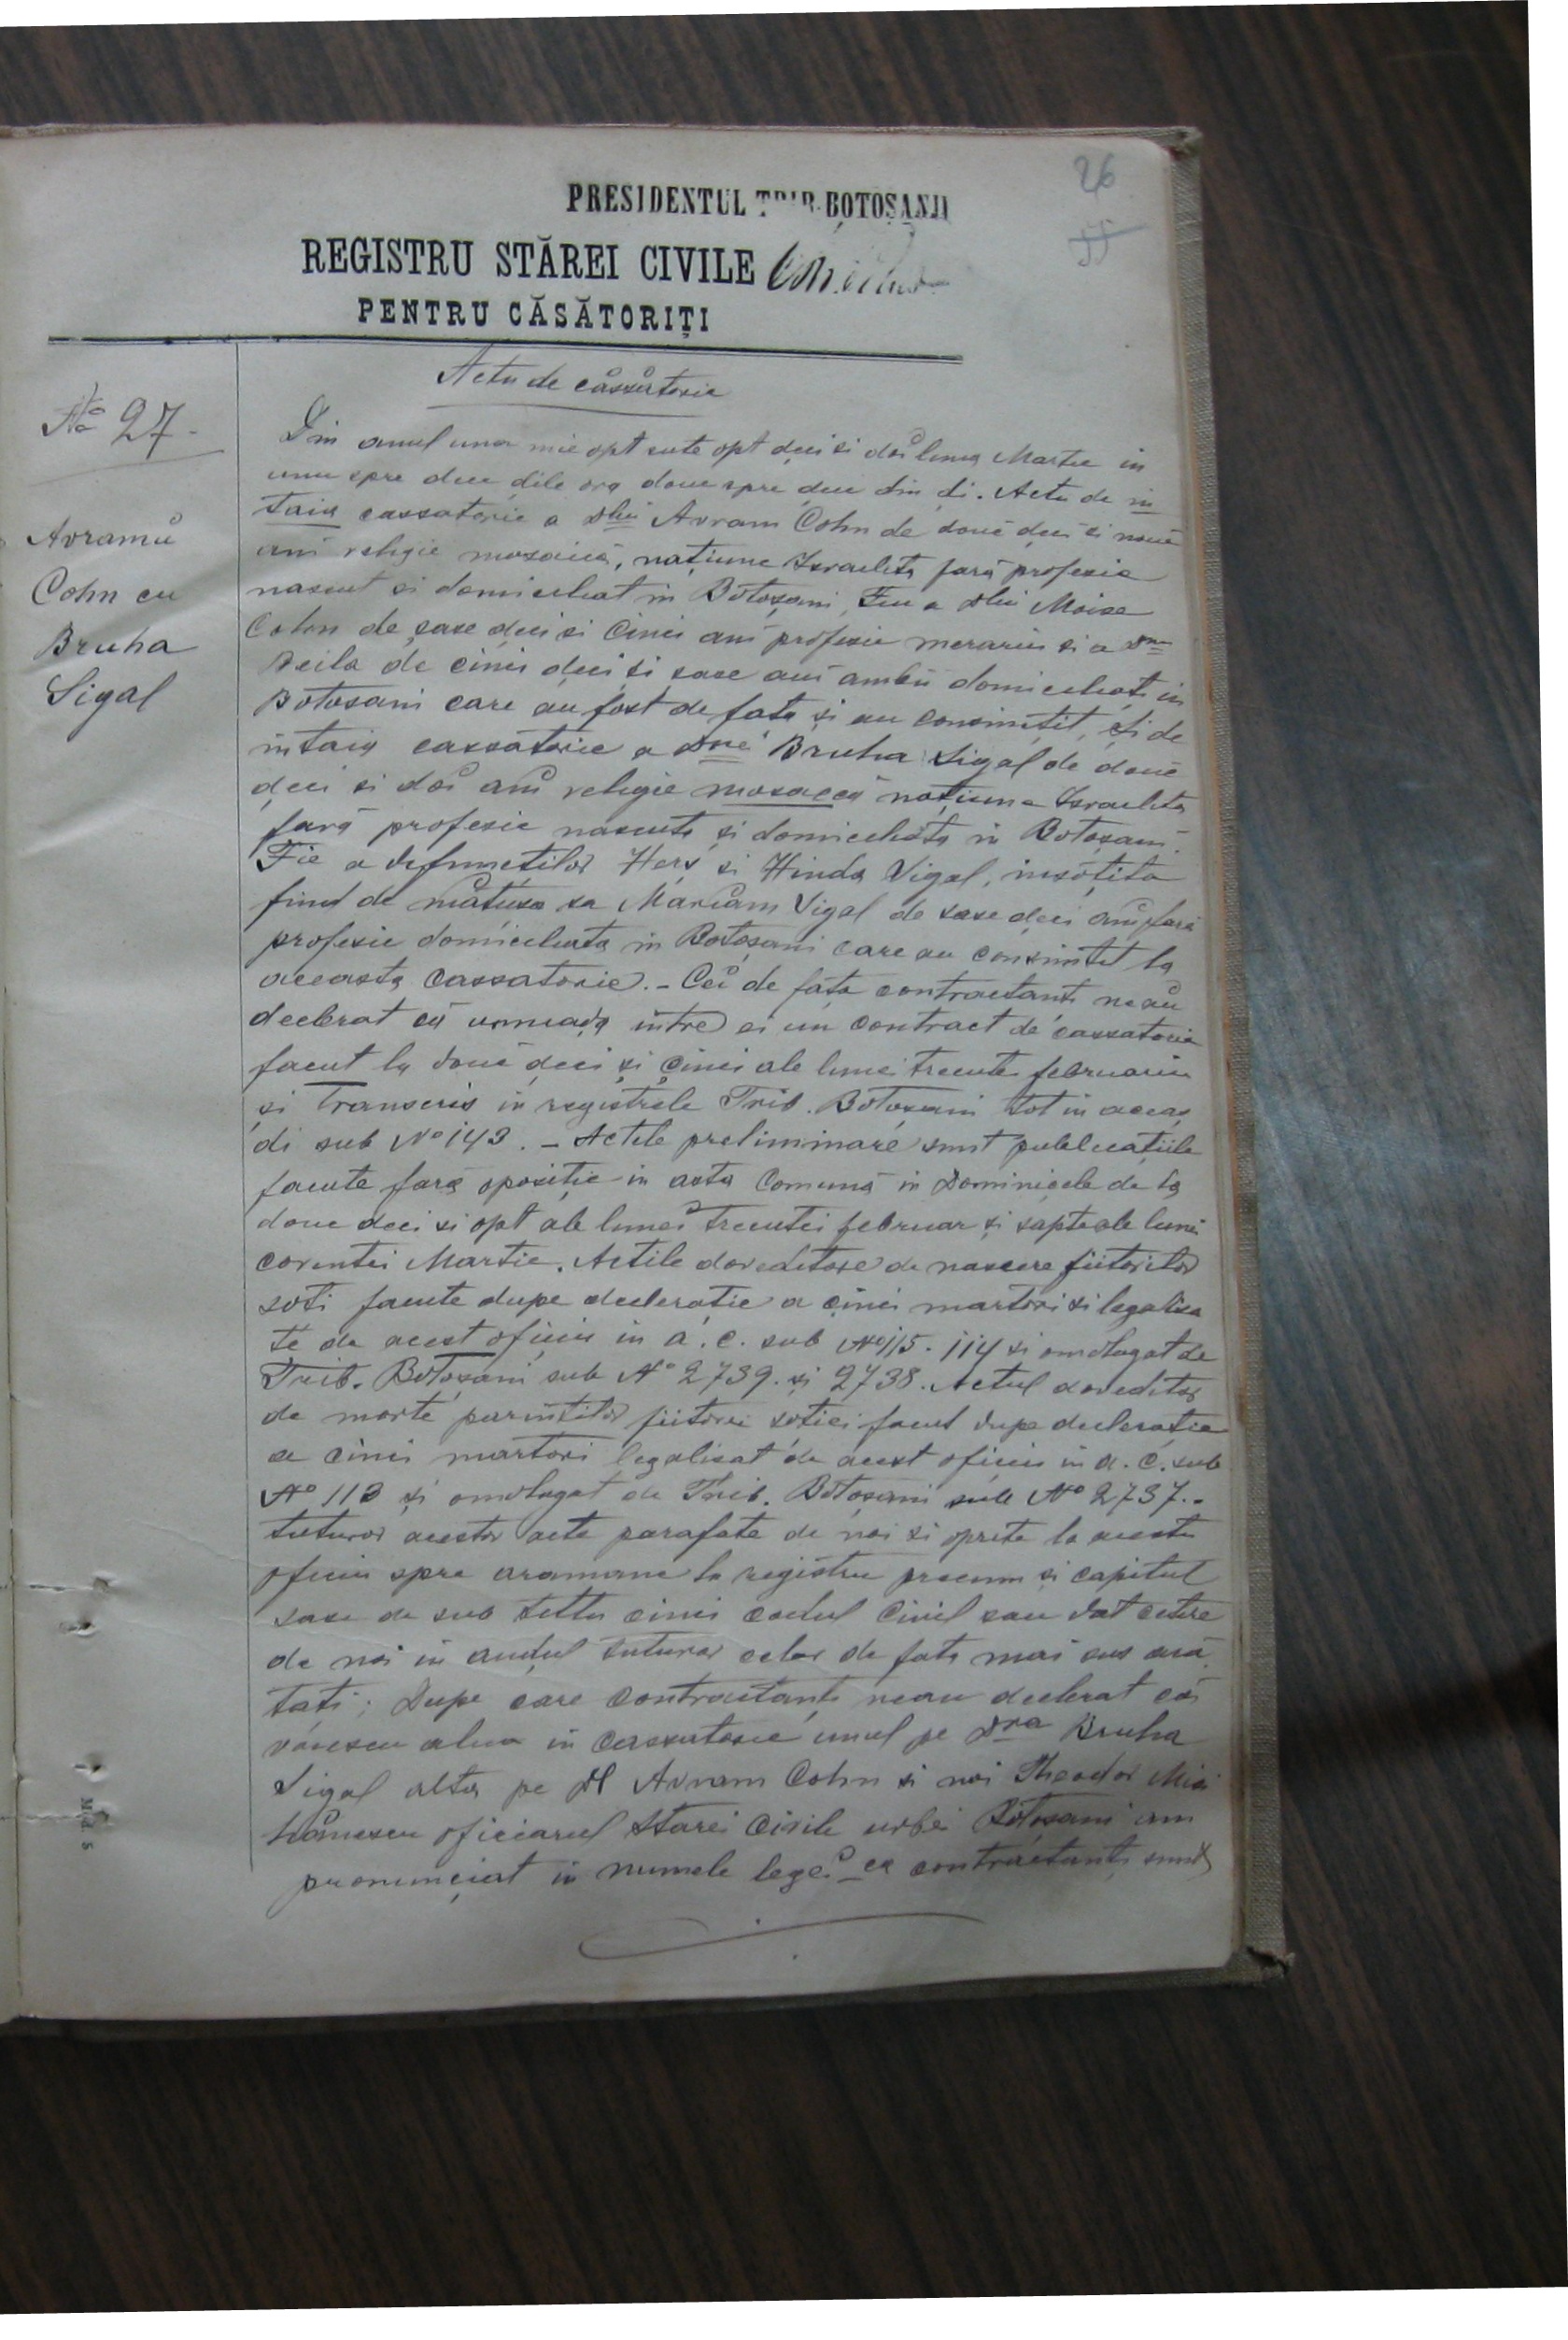 26
55
PRESIDENTUL TRIB. BOTOȘANII
REGISTRU STĂREI CIVILE
PENTRU CĂSĂTORIȚI
No 27.
Avramŭ
Cohn cu
Bruha
Sigal
Actu de cåssatorie
Din anul una mie opt sute opt deci si doi luna Martie in
unu spre dece dile ora doue spre dece din di. Actu de in
taia cassatorie a Dlui Avram Cohn de douĕ deci si nouĕ
ani religie mozaicä, națiune Israelita fară profesie
nascut si domiciliat in Botoșani, Fiu a Dlui Moise
Cohn de șase deci si Cinci ani profesie merariu si a Dnei
Beila de cinci deci si sase ani ambii domiciliați in
Botosani care au fost de fata și au consimțit, Si de
intaia cassatorie a Dnei Bruha Sigal de douĕ
deci si doi ani religie mosaeca națiune Israelita
fară profesie nascuta și domiciliata in Botoșani.
Fie a defuncților Herș si Hinda Sigal, insoțita
fiind de mătușa sa Mariam Sigal de sase deci ani fara
profesie domiciliata in Botoșani care au consimtit la
aceasta cassatorie. - Cei de fața contractanti neau
declerat că urmeaza intre ei un contract de cassatorie
facut la doue deci și cinci ale lunei trecute februarie
si transcris in registrele Trib. Botosani tot in aceaș
di sub No 143. - Actele preliminare sunt publicațiile
facute fară opoziție in asta Comună in Dominicele de la
doue deci si opt ale lunei trecutei februar și sapte ale lunei
corentei Martie. Actile doveditore de nascere fiitorilor
soti facute dupe decleratie a cinci martori si legalisa
te de acest oficiu in a. c. sub No 115. 114 si omologat de
Trib. Botoșani sub No 2739. și 2738. Actul doveditor
de morte parintilor fiitorei sotiei facut dupe declerație
a cinci martori legalisat de acest oficiu in a. c. sub
No 113 și omologat de Trib. Botoșani sub No 2737. -
tuturor acestor acte parafate de noi si oprite la acestu
oficiu spre aramane la registru precum și capitul
sase de sub titlu cinci codul Civil sau dat cetire
de noi in audul tuturor celor de fata mai sus ară
tati; Dupe care Contractanți neau declerat că
voiescu alua in cassatorie unul pe Dra Bruha
Sigal alta pe Dl Avram Cohn si noi Theodor Mi
hånescu oficiarul Starei Civile urbei Botoșani am
pronunciat in numele legei ca contractanți sunt